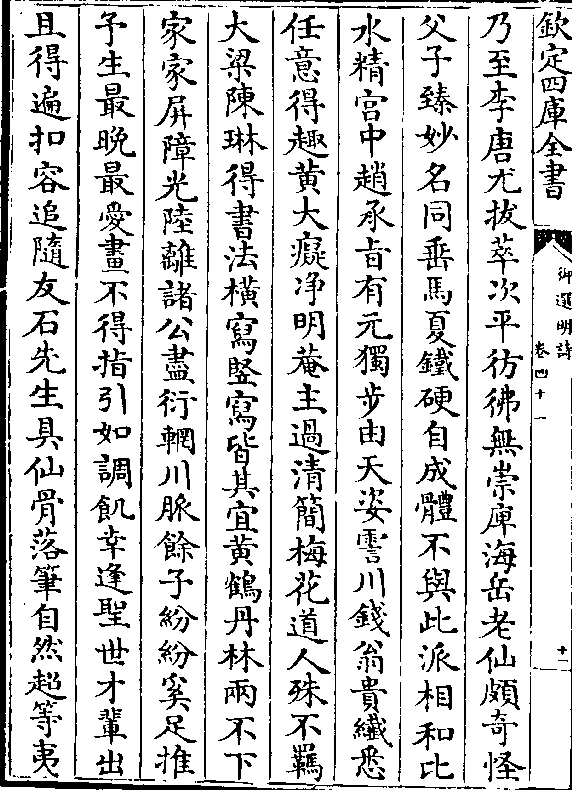 欽定四庫全書
御選明詩
卷四十一
十一
乃至李唐尤拔萃次平彷彿無崇庳海岳老仙頗奇怪
父子臻妙名同垂馬夏鐵硬自成體不與此派相和比
水精宫中趙承旨有元獨步由天姿霅川錢翁貴纎悉
任意得趣黄大癡净明菴主過清簡梅花道人殊不羈
大梁陳琳得書法横寫竪寫皆其宜黄鶴丹林兩不下
家家屏障光陸離諸公盡衍輞川脈餘子紛紛奚足推
予生最晚最愛畫不得指引如調飢幸逢聖世才輩出
且得遍扣容追隨友石先生具仙骨落筆自然超等夷